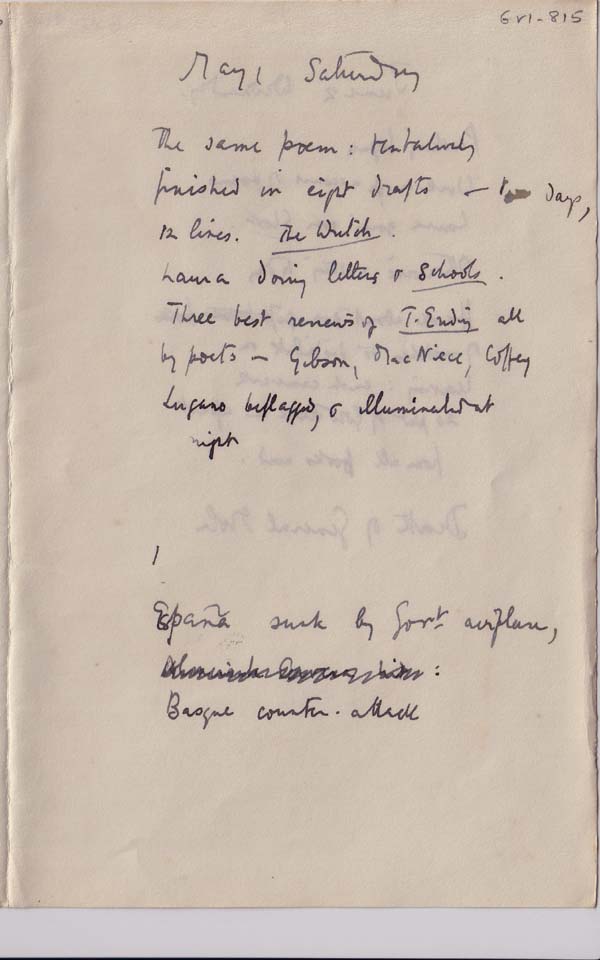 6VI-815
May 1 Saturday
The same poem: tentatively
finished in eight drafts — days,
12 lines. The Wretch.
Laura doing letters & Schools.
Three best reviews of T. Ending all
by poets — Gibson, MacNiece, Coffey
Lugano beflagged, & illuminated at
night
1
España sunk by Govt airplane,
Basque counter-attack